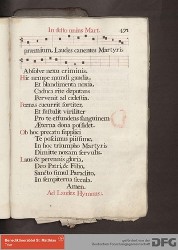 In festo unius Mart.
præmium, Laudes canentes Martyris
Absolve nexu criminis.
Hic nempe mundi gaudia
Et blandimenta noxia,
Caduca rite deputans
Pervenit ad cœlestia.
Pœnas cucurrit fortiter,
Et sustulit viriliter
Pro te effundens sanguinem
Æterna dona possidet.
Ob hoc precatu supplici
Te poscimus piissime,
In hoc triumpho Martyris
Dimitte noxam servulis.
Laus & perennis gloria,
Deo Patri, & Filio,
Sancto simul Paraclito,
In sempiterna sæcula.
Amen.
Ad Laudes Hymnus.
DFG